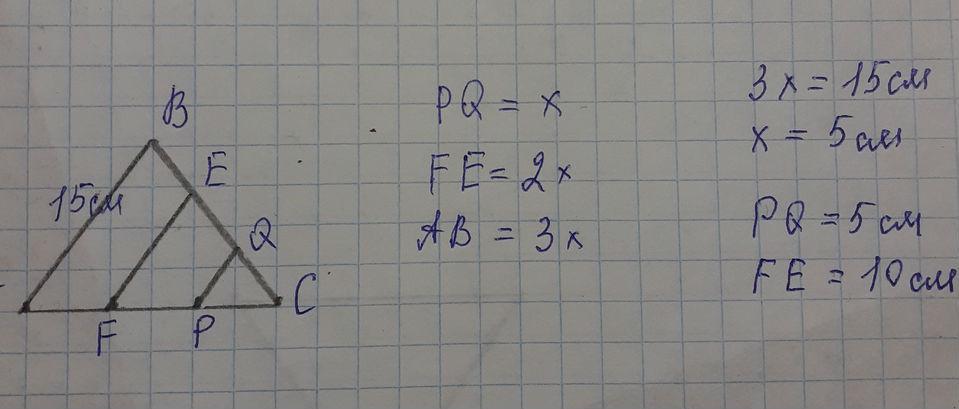 B
E
15см
Q
C
F
P
PQ = x
FE = 2x
AB = 3x
3x = 15см
x = 5см
PQ = 5см
FE = 10см